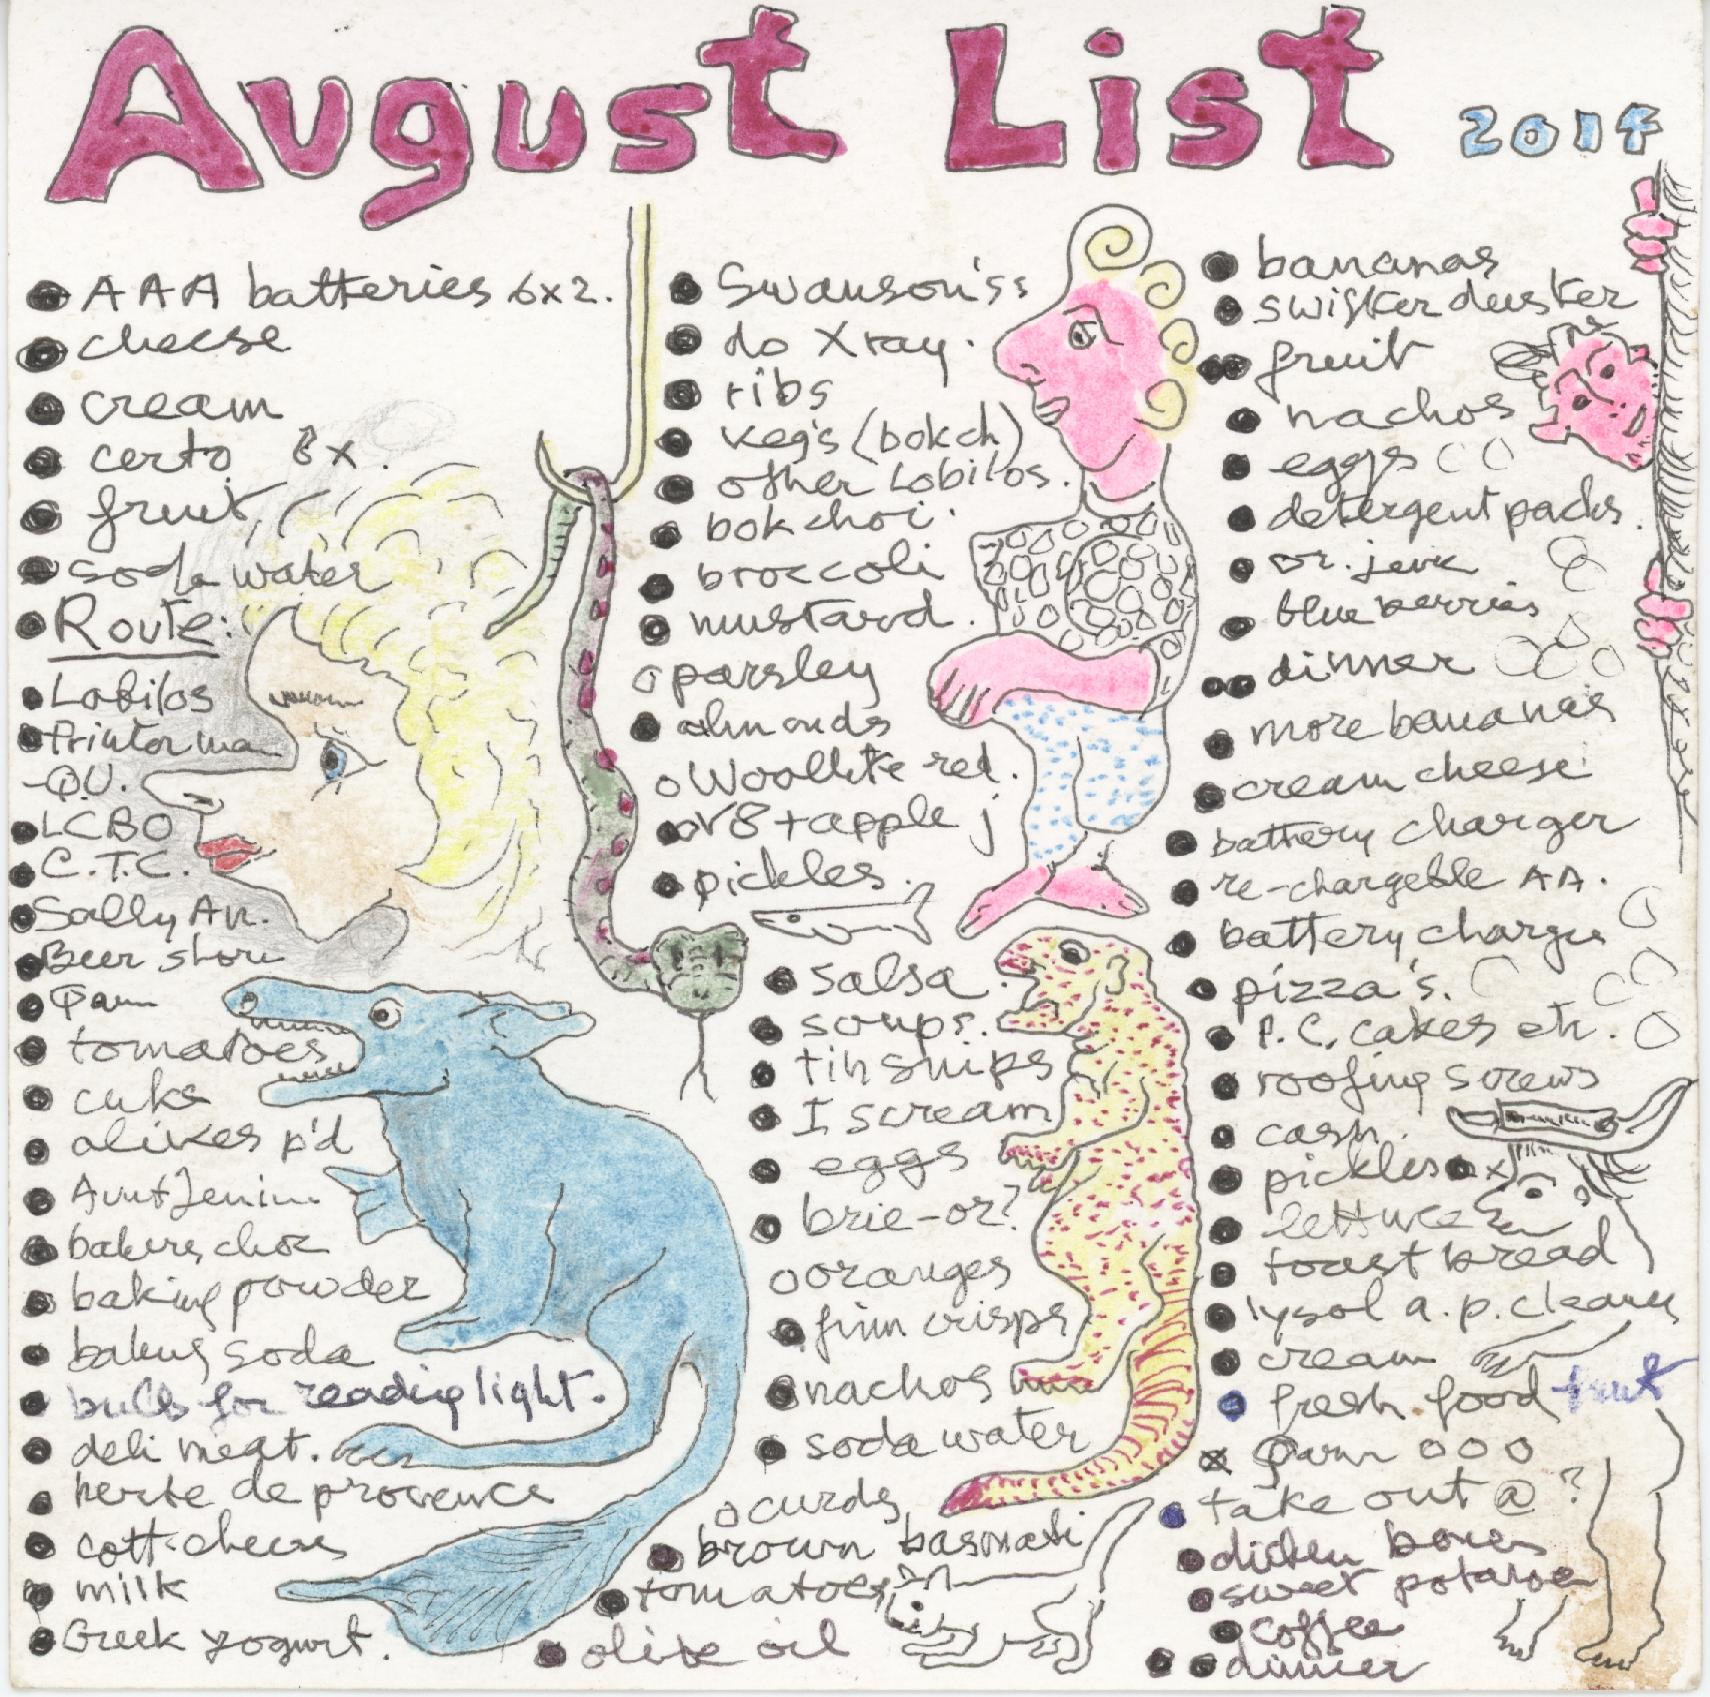 August List 2014
AAA batteries 6x2.
cheese
cream
certo 8x.
fruit
soda water
Route:
Lobilos
Printer ma
-Q.U.
LCBO
C.T.C.
Sally An.
Beer store
Parm
tomatoes
cuks
olives p'd
Aunt Jemim
bakers choc
baking powder
baking soda
bulb for reading light.
deli meat.
herbe de provence
cott. cheese
milk
Greek yogurt.
Swanson's:
do Xray.
ribs
veg's (bok ch)
other Lobilos.
bok choi.
broccoli
mustard.
parsley
almonds
Woollite red.
V8 + apple j
pickles.
salsa.
soups.
tin snips
I scream
eggs
brie-or?
oranges
finn crisps
nachos
soda water
curds
brown basmati
tomatoes
olive oil
bananas
swifter duster
fruit
nachos
eggs
detergent packs.
Dr. jerk
blue berries
dinner
more bananas
cream cheese
battery charger
re-chargeble AA.
battery charger
pizza's.
P.C. cakes etc.
roofing screws
cash.
pickles x
lettuce
toast bread
lysol a.p. cleaner
cream
fresh food fruit
Parm
take out @ ?
chicken bones
sweet potatoe
coffee
dinner